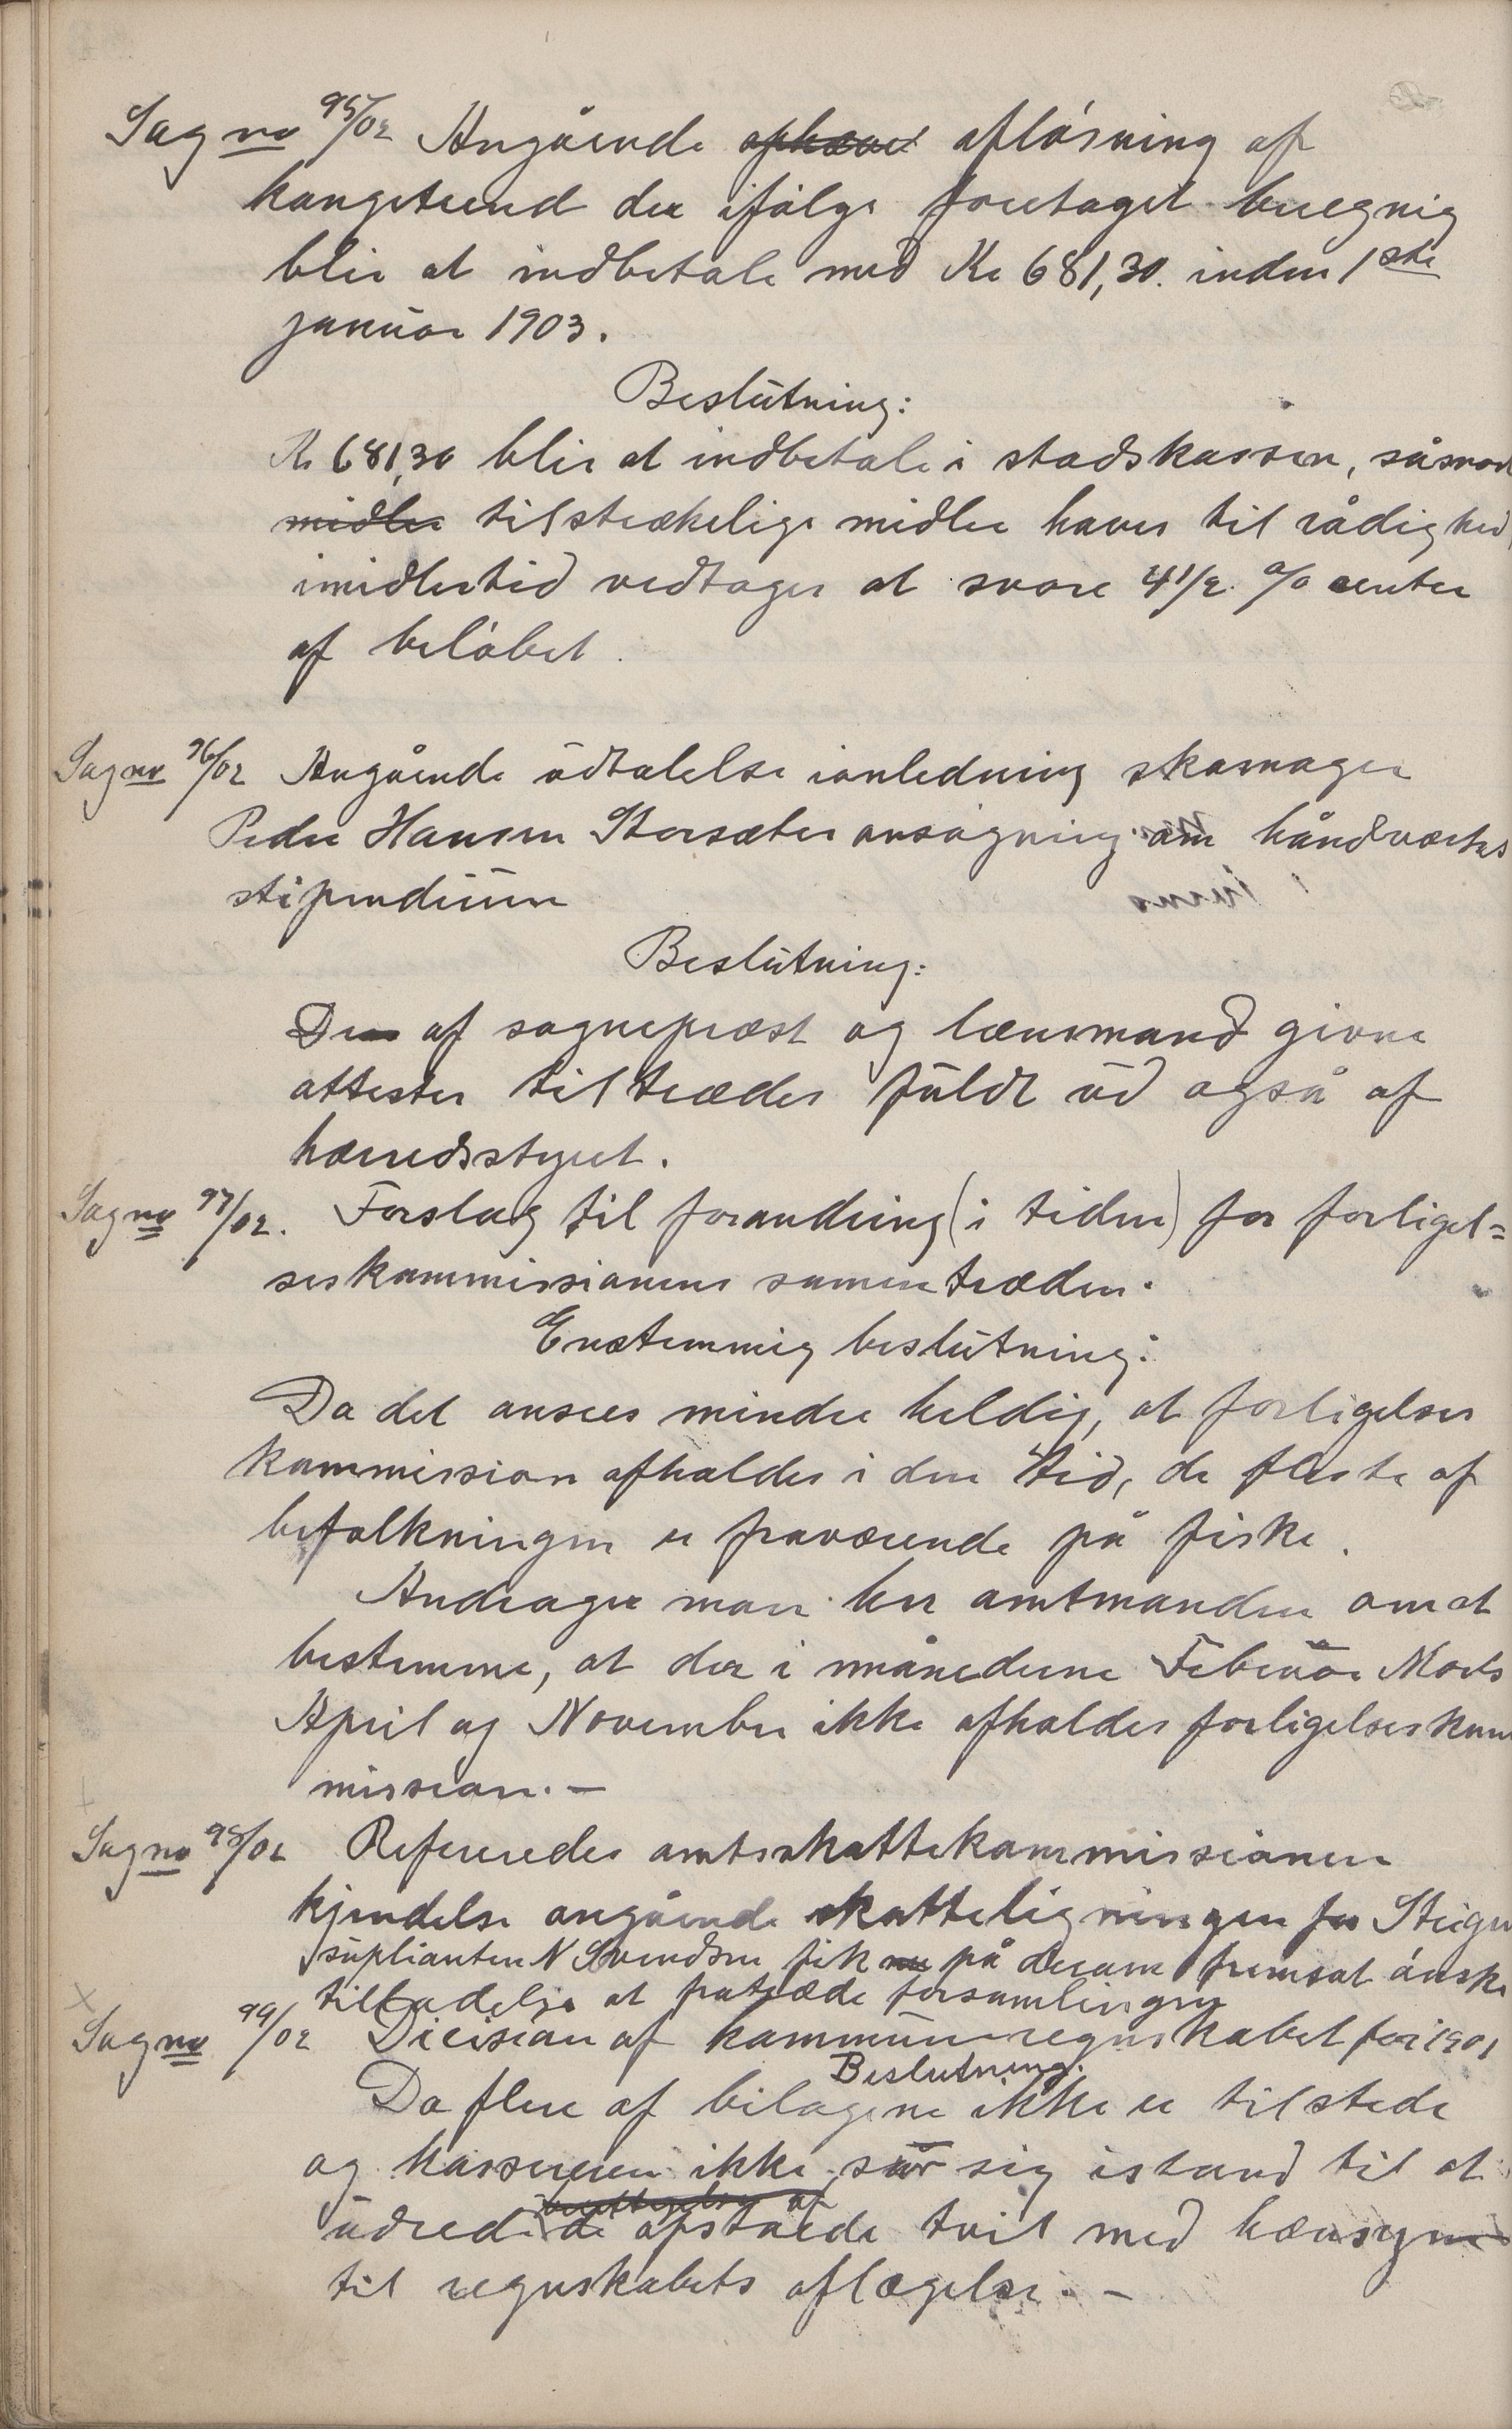 Sag no 95/02 Angående ophævel afløsning af
kongetiend der ifølge foretaget beregnig
blir at indbetale med Kr 681,30. inden 1ste
januar 1903.
Beslutning:
Kr 681,30 blir at indbetale i stadskassen, såsnart
midler tilstrækelige midler haves til rådighed,
imidlertid vedtages at svare 4 1/2 % renter
af beløbet.
Sag no 96/02 Angående udtalelse ianledning skomager
Peder Hansen Storsæter ansøgning om håndværks
stipendium
Beslutning:
Den af sogneprest og lænsmand givne
attester tiltrædes fuldt ud også af
herredsstyret.
Sag no 97/02. Forslag til forandring (i tiden) for forligel=
seskommissionens samentræden.
Enstemmig beslutning:
Da det ansees mindre heldig, at forligelses
kommission afholdes i den tid, de fleste af
befolkningen er fraværende på fiske.
Andrager man herr amtmanden om at
bestemme, at der i månederne Februar Mars
April og November ikke afholdes forligelseskom
mission. —
Sag no 98/02 Refereredes amtsskattekommissionen
kjendelse angående skatteligningen for Steigen
suplianten N Svendsen fik på derom fremsat ønske
tilladelse at fratræde forsamlingen
Sag no 99/02 Dicision af kommuneregnskabet for 1901
Beslutning:
Da flere af bilagene ikke er tilstede
og kassereren ikke sår sig istand til at
udrede de opståede tvil med hensyn
til regnskabets aflægelse. —